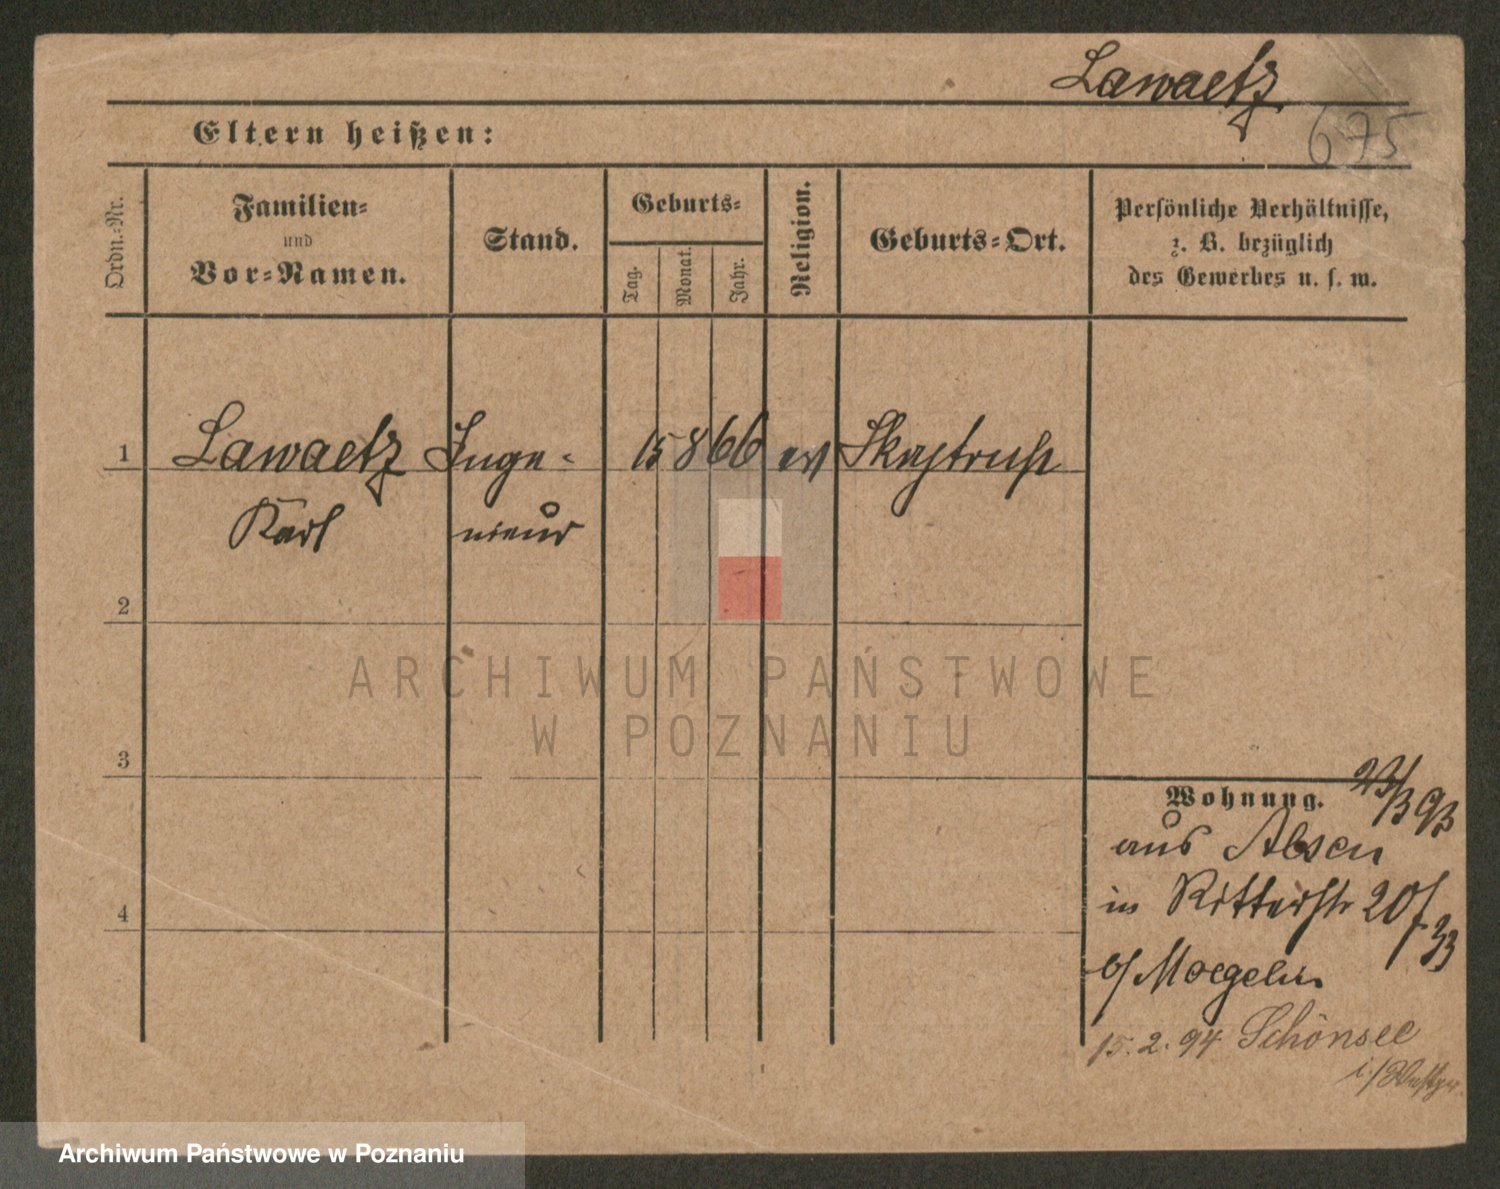 Lawaetz
675
Eltern heißen:
Ordn.-Nr.
Familien-
und
Vor-Namen.
Stand.
Geburts-
Tag.
Monat.
Jahr.
Religion.
Geburts-Ort.
Persönliche Verhältnisse,
z. B. bezüglich
des Gewerbes u. s. w.
1 Lawaetz Inge- 15 8 66 ev
Karl nieur
2
ARCHIWUM PAŃSTWOWE
W POZNANIU
3
Wohnung. 23/3 93
aus Absen
in Ritterstr 20/
b/ Moegelin
15.2.94 Schönsee
i/Westpr.
4
Archiwum Państwowe w Poznaniu